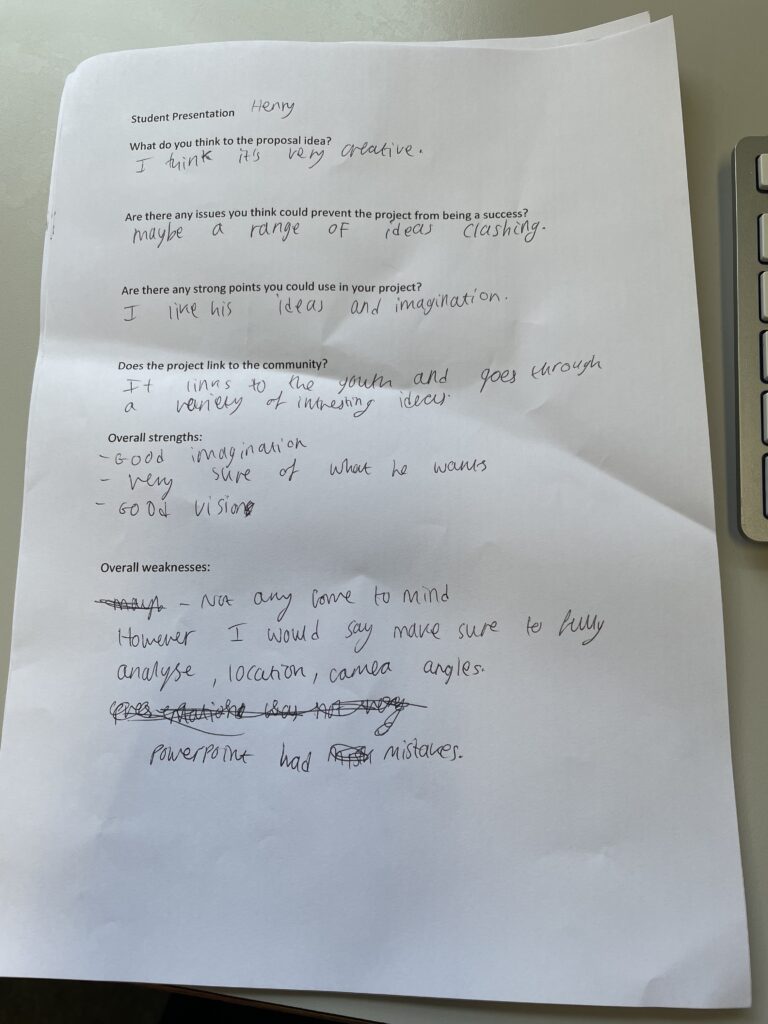 Student Presentation Henry
What do you think to the proposal idea?
I think it's very creative.
Are there any issues you think could prevent the project from being a success?
maybe a range of ideas clashing.
Are there any strong points you could use in your project?
I like his ideas and imagination.
Does the project link to the community?
It links to the youth and goes through
a variety of intresting ideas.
Overall strengths:
- Good imagination
- very sure of what he wants
- Good vision
Overall weaknesses:
- Not any come to mind
However I would say make sure to fully
analyse, location, camea angles.
powerpoint had mistakes.